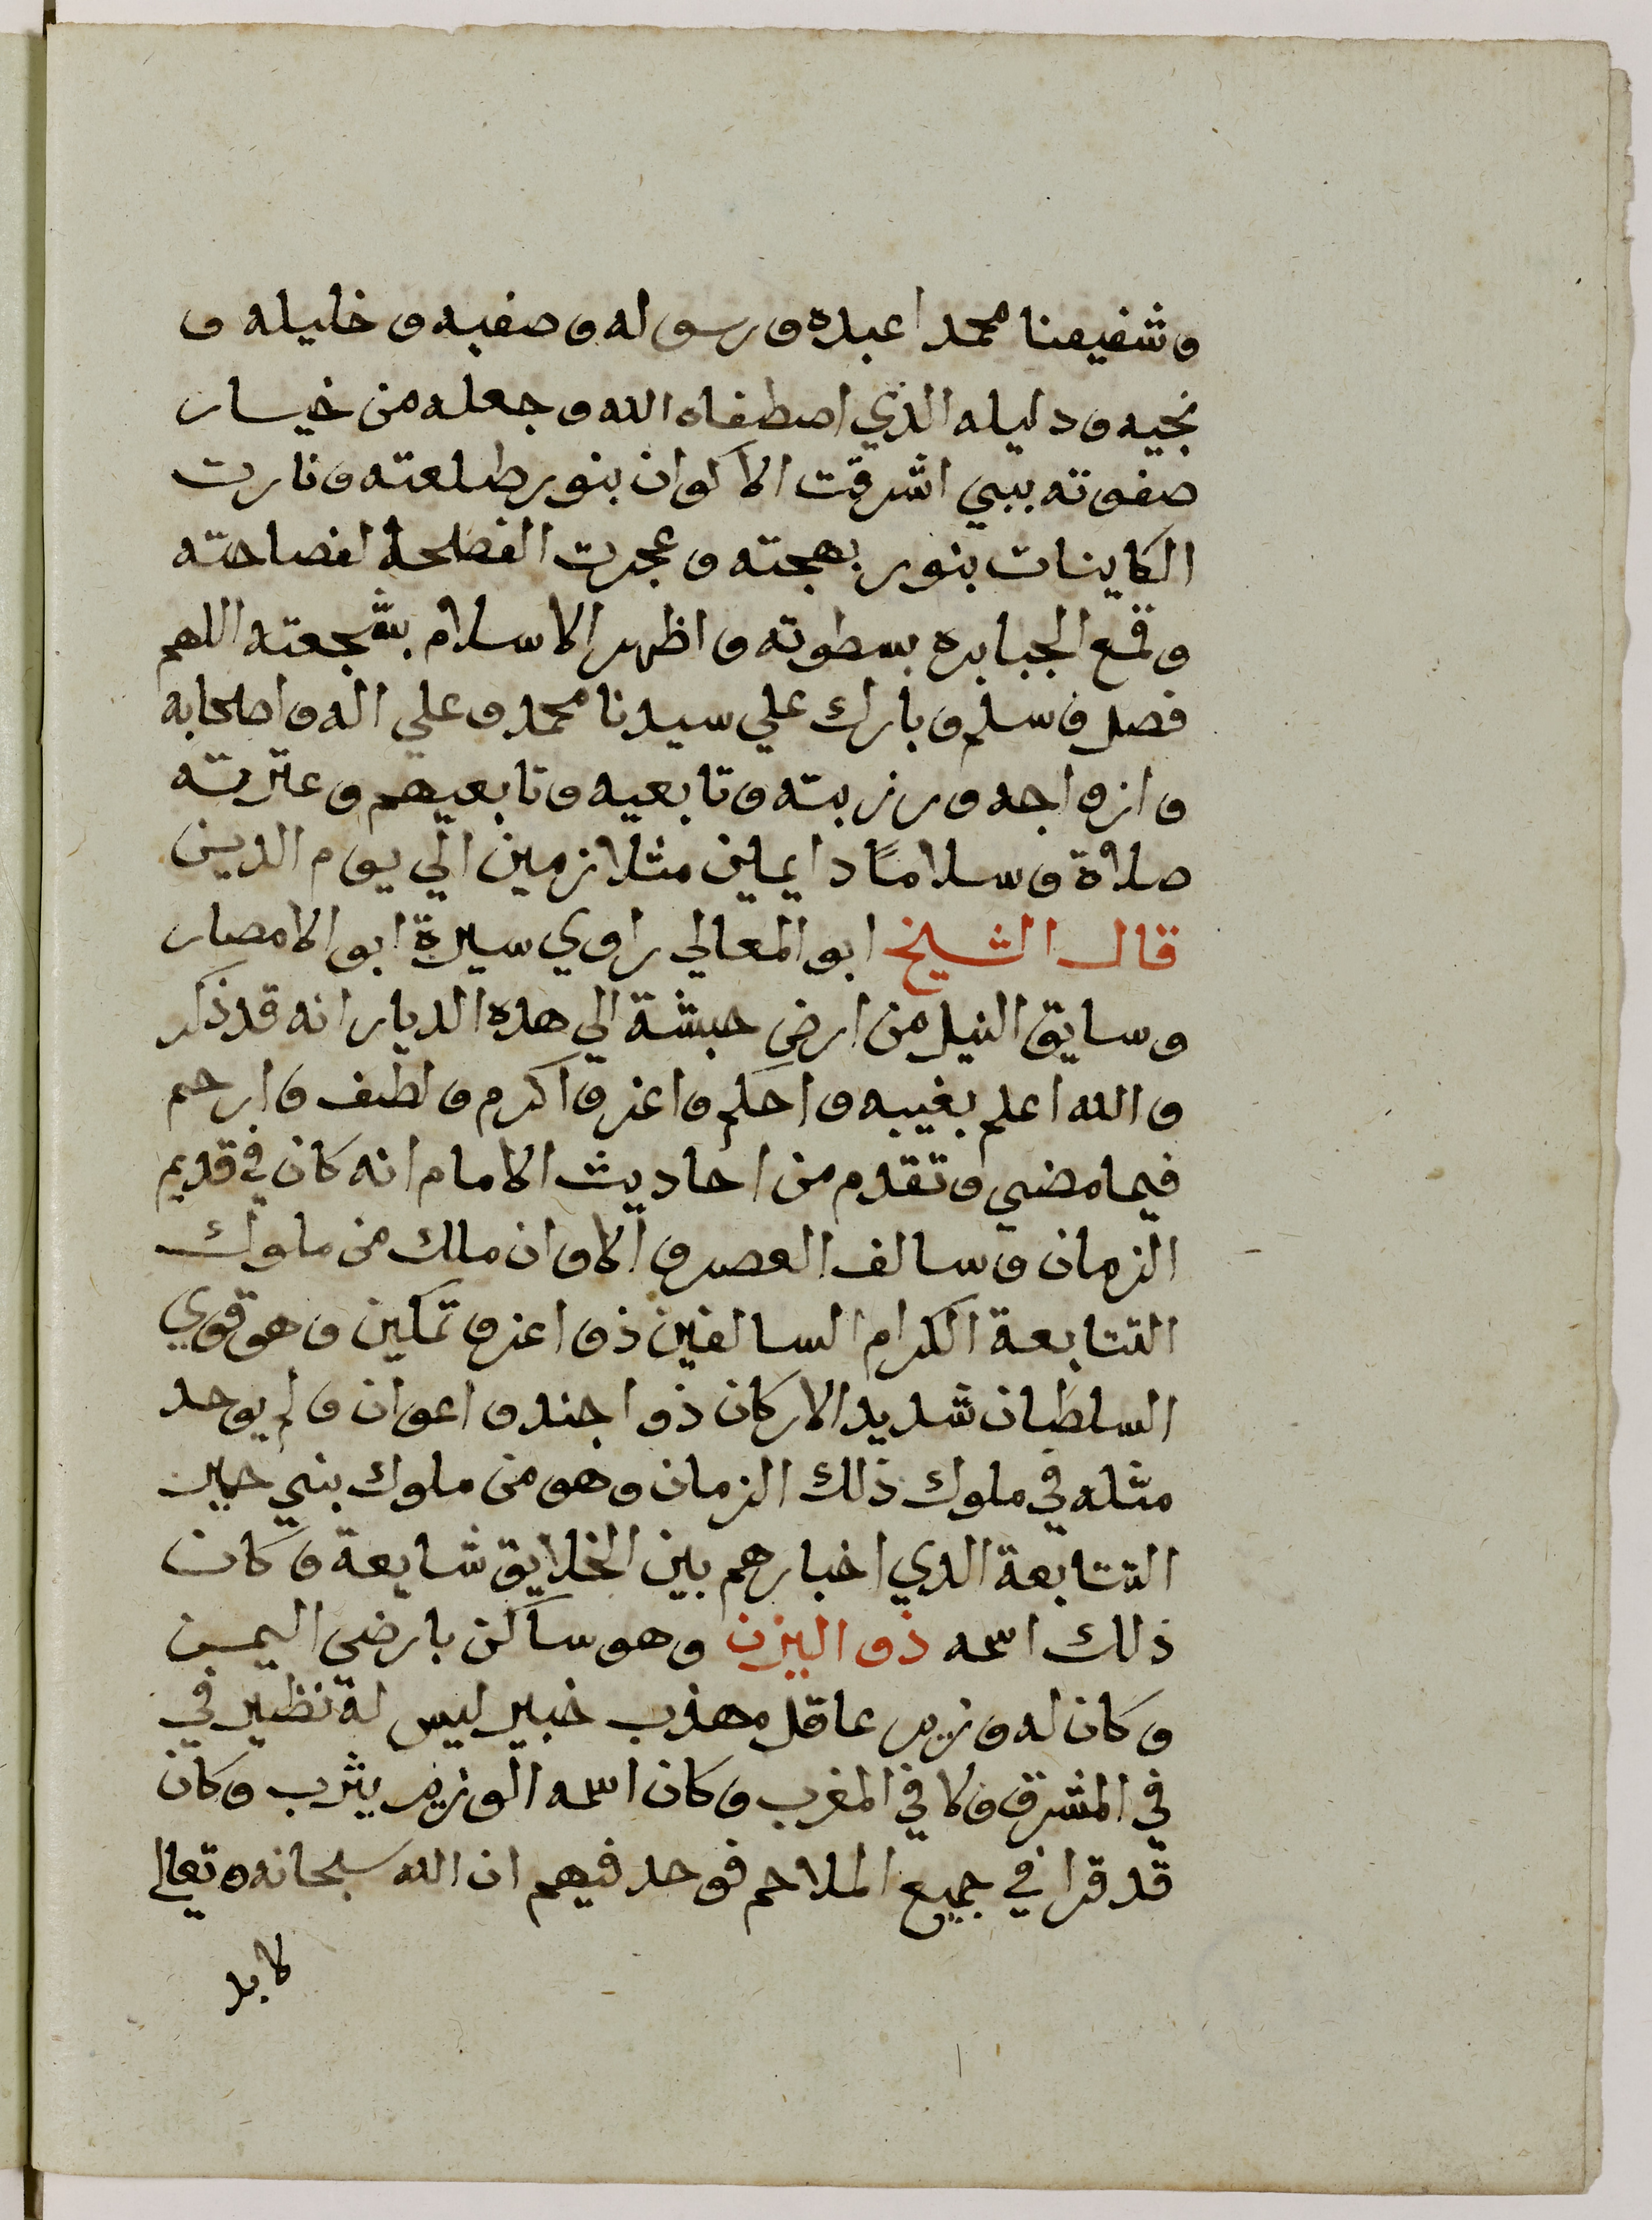 وشفيعنا محمدا عبده ورسوله وصفيه وخليله و
نجيه ودليله الذي اصطفاه الله وجعله من خيار
صفوته ببي اشرقت الاكوان بنور طلعته ونارت
الكاينات بنور بهجته وعجزت الفصلحا لفصاحته
وقمع الجبابره بسطوته واظهر الاسلام بشجعته اللهم
فصل وسلم وبارك علي سيدنا محمد وعلي اله واصحابه
وازواجه ورزيته وتابعيه وتابعيهم وعترته
صلاة وسلامًا دايمين متلازمين الي يوم الدين
قال الشيخ ابو المعالي راوي سيرة ابو الامصار
وسايق النيل من ارض حبشة الي هده الديار انه قد ذكر
والله اعلم بغيبه واحكم واعز واكرم ولطف وارحم
فيما مضي وتقدم من احاديث الامام انه كان في قديم
الزمان وسالف العصر والاوان ملك من ملوك
التتابعة الكرام السالفين ذو اعز وتمكين وهو قوي
السلطان شديد الاركان ذو اجند واعوان ولم يوحد
مثله في ملوك ذلك الزمان وهو من ملوك بني حمير
التتابعة الدي اخبارهم بين الخلايق شايعة وكان
ذلك اسمه ذو اليزن وهو ساكن بارضي اليمن
وكان له وزير عاقل مهذب خبير ليس له نظير في
في المشرق ولا في المغرب وكان اسمه الوزير يثرب وكان
قد قرا في جميع الملاحم فوحد فيهم ان الله سبحانه وتعالي
لا بد